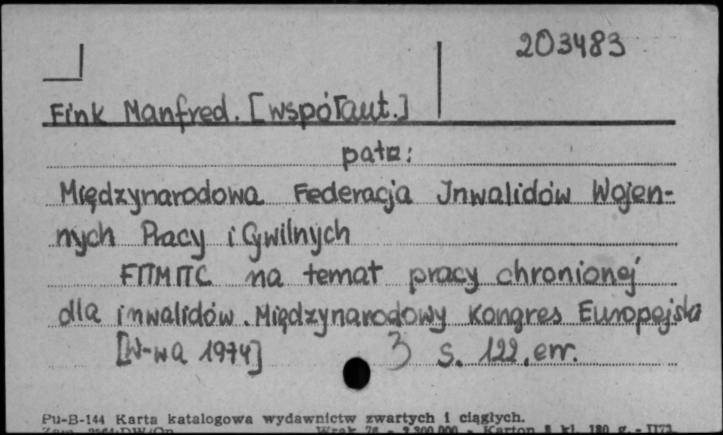 203483
Fink Manfred. [współaut.]
patz:
Międzynarodowa Federacja Inwalidów Wojen-
nych Pracy i Cywilnych
FITMITC na temat pracy chronionej
dla inwalidów. Międzynarodowy Kongres Europejski
[W-wa 1974] 3 s. 122, err.
Pu-B-144 Karta katalogowa wydawnictw zwartych i ciągłych.
Karton kl. 180 g.